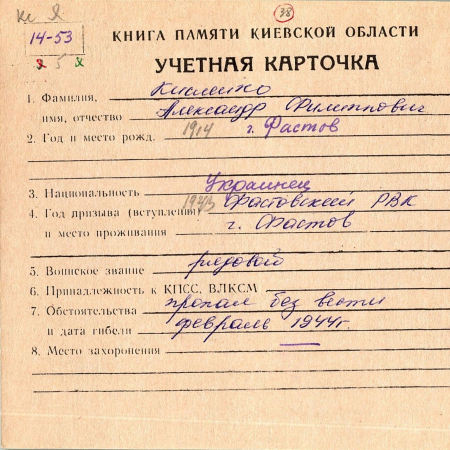 Кс Я
38
14-53
я 5 я
КНИГА ПАМЯТИ КИЕВСКОЙ ОБЛАСТИ
УЧЕТНАЯ КАРТОЧКА
1. Фамилия, Кисленко
имя, отчество Александр Филиппович
2. Год и место рожд. 1914 г. Фастов
3. Национальность Украинец
4. Год призыва (вступления) 1943 Фастовский РВК
и место проживания г. Фастов
5. Воинское звание рядовой
6. Принадлежность к КПСС, ВЛКСМ
7. Обстоятельства пропал без вести
и дата гибели февраль 1944г.
8. Место захоронения —